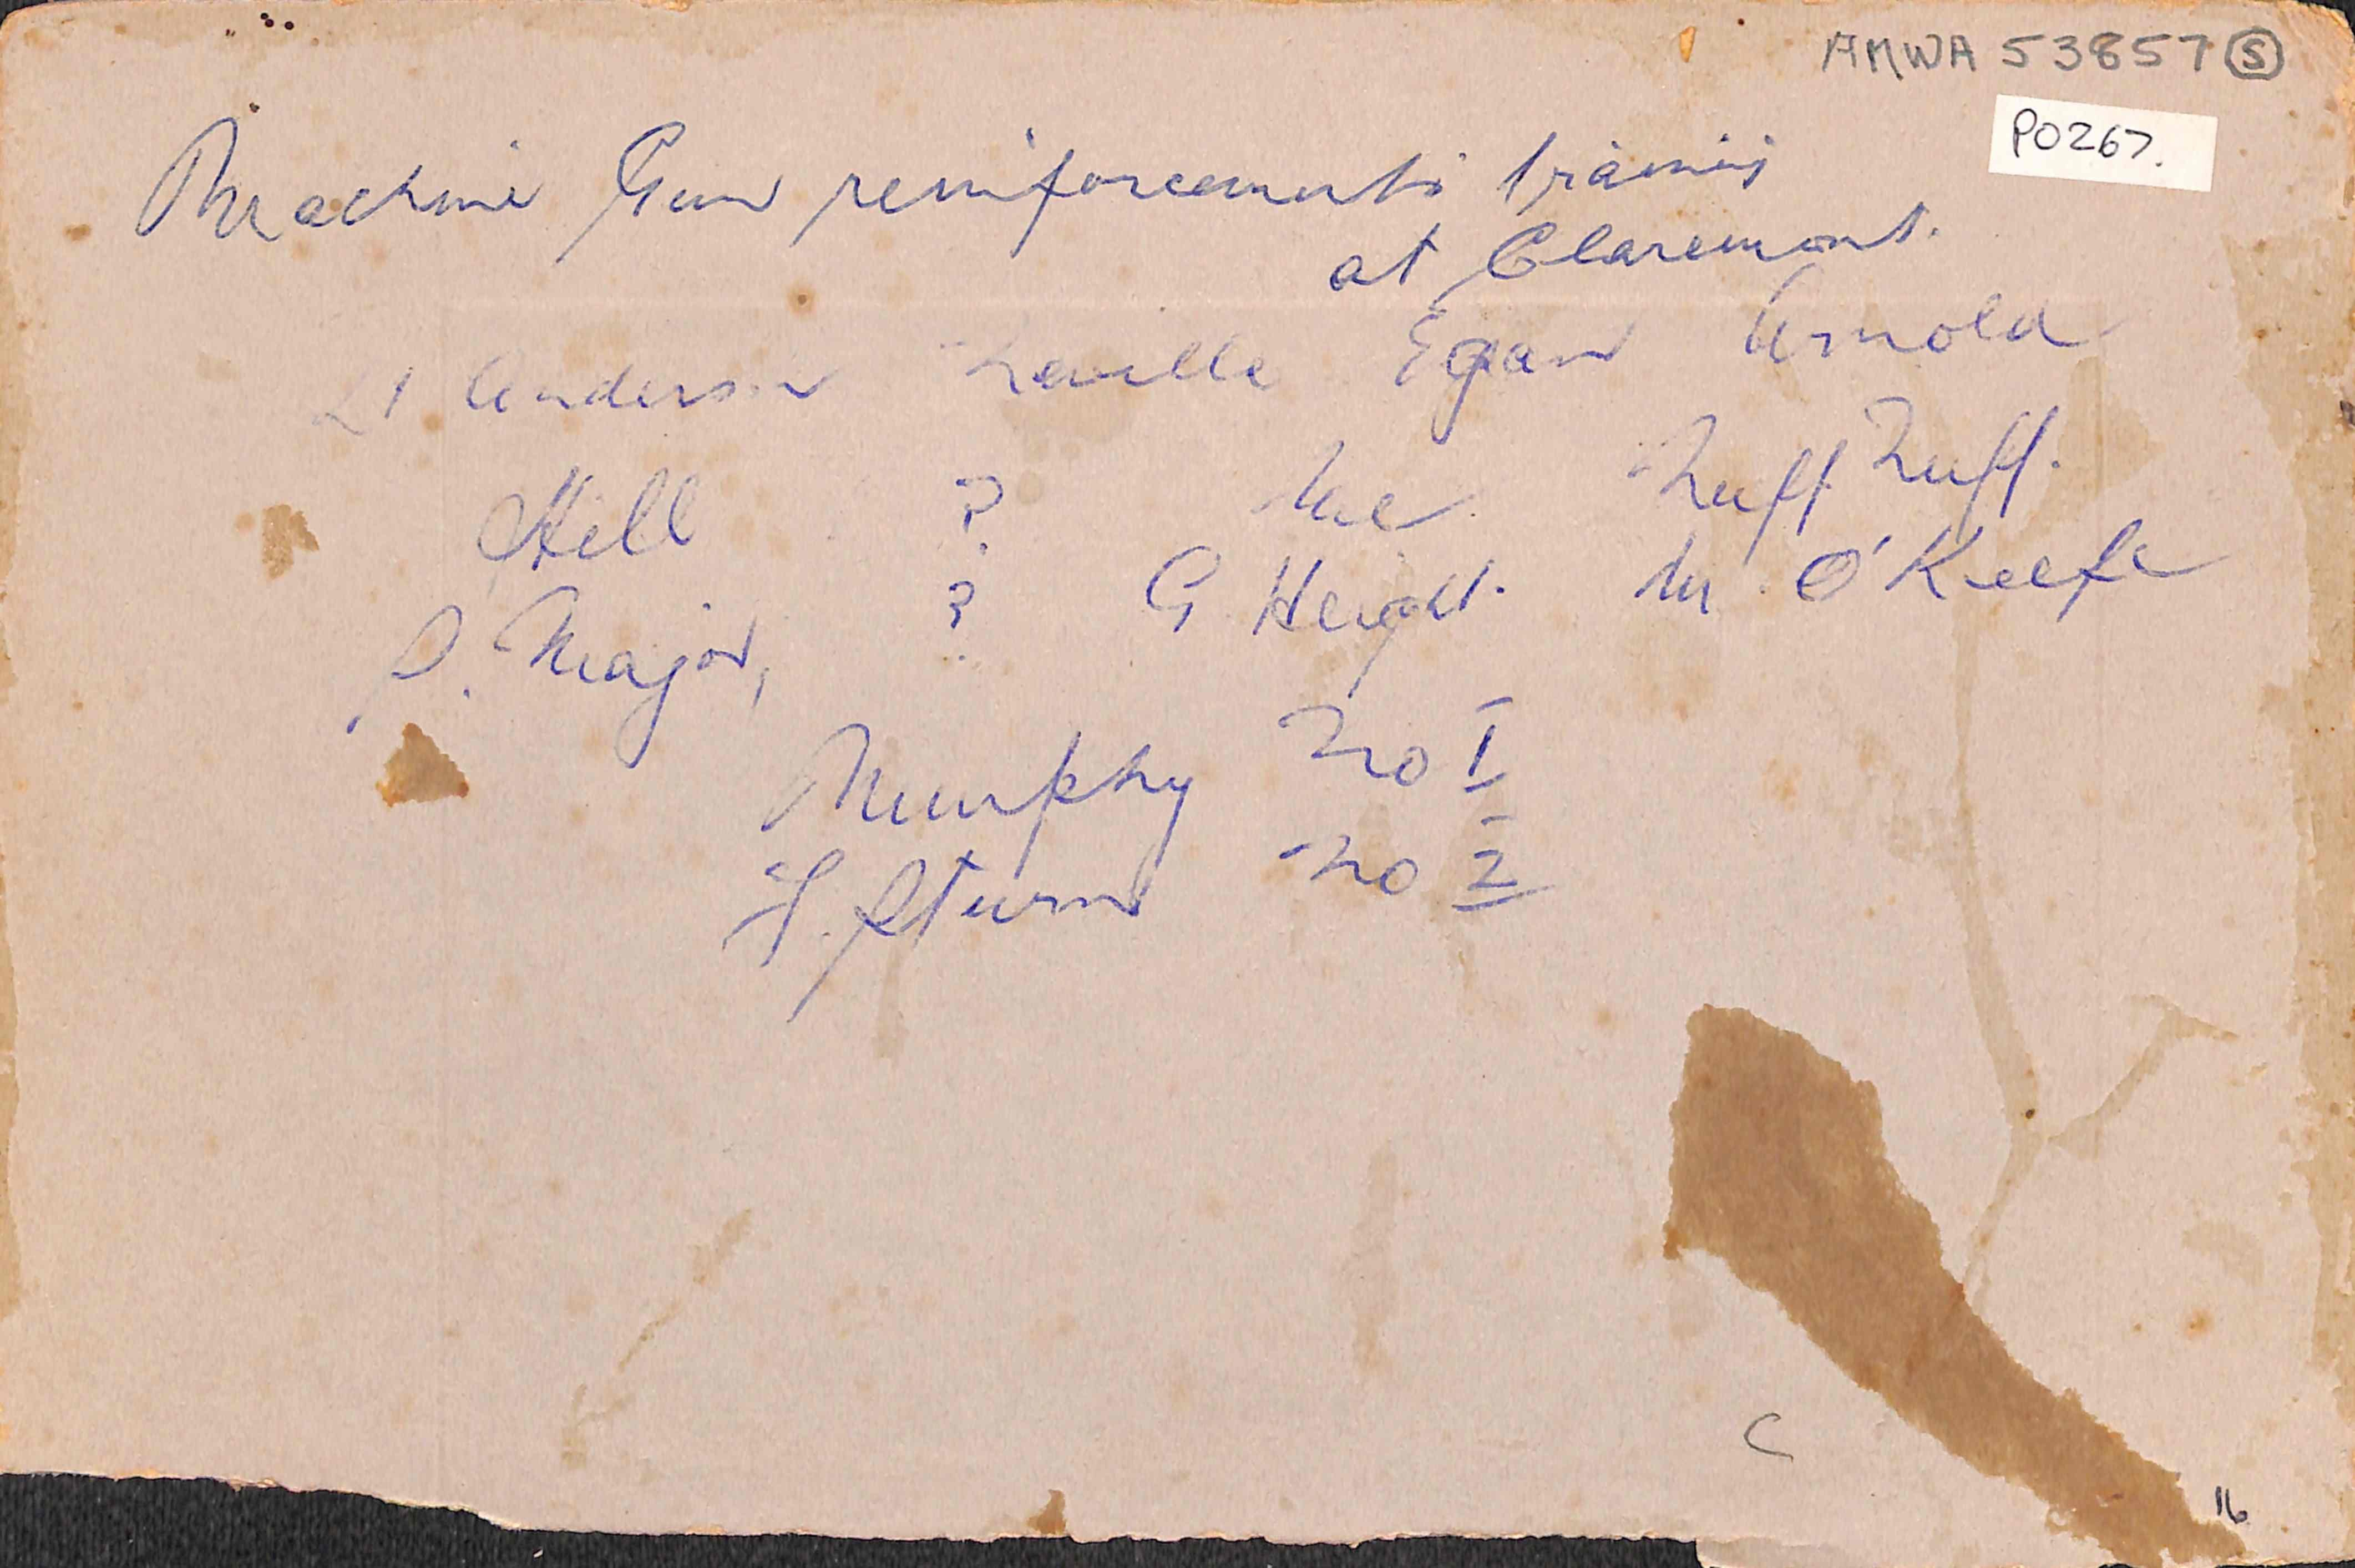 AMWA 53857 S
P0267.
Machine Gun reinforcements training
at Claremont.
Lt Anderson Neville Egan Arnold
Hill ? Me Nuff Nuff.
S. Major, ? G Height. Mr O'Keefe
Murphy No 1
H. Sturm No 2
C
16